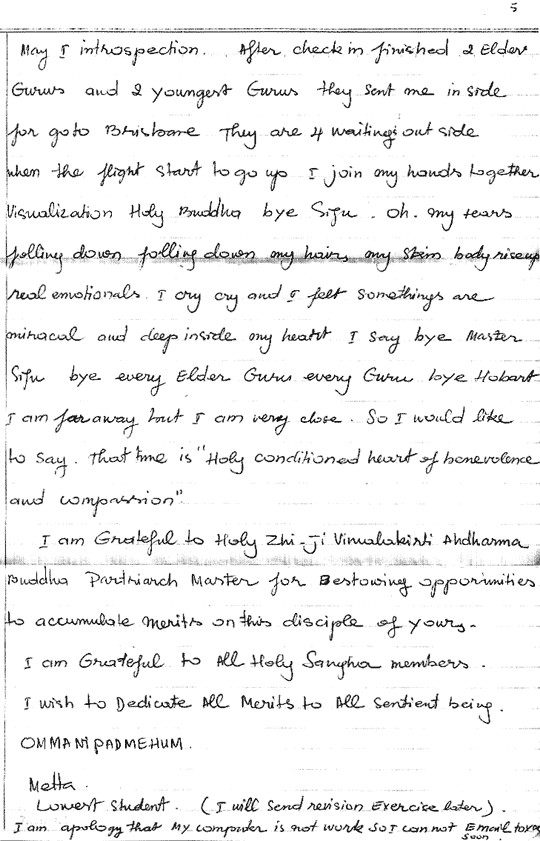 5
May I introspection. After check in finished 2 Elder
Gurus and 2 youngest Gurus they sent me in side
for go to Brisbane They are 4 waitings out side
when the flight start to go up I join my hands together
Visualization Holy Buddha bye Sifu. Oh. my tears
folling down folling down my hairs my skin body riseup
real emotionals. I cry cry and I felt somethings are
miracal and deep inside my heart I say bye Master
Sifu bye every Elder Guru every Guru bye Hobart
I am far away but I am very close. So I would like
to say. That time is "Holy conditioned heart of benevolence
and compassion"
I am Grateful to Holy Zhi-Ji Vimalakirti Ahdharma
Buddha Partriarch Master for Bestowing opportunities
to accumulate merits on this disciple of yours.
I am Grateful to All Holy Sangha members.
I wish to Dedicate All Merits to All sentient being.
OMMANIPADMEHUM.
Metta.
Lowest student. (I will send revision Exercise later).
I am apology that My computer is not work so I can not Email to you
soon.